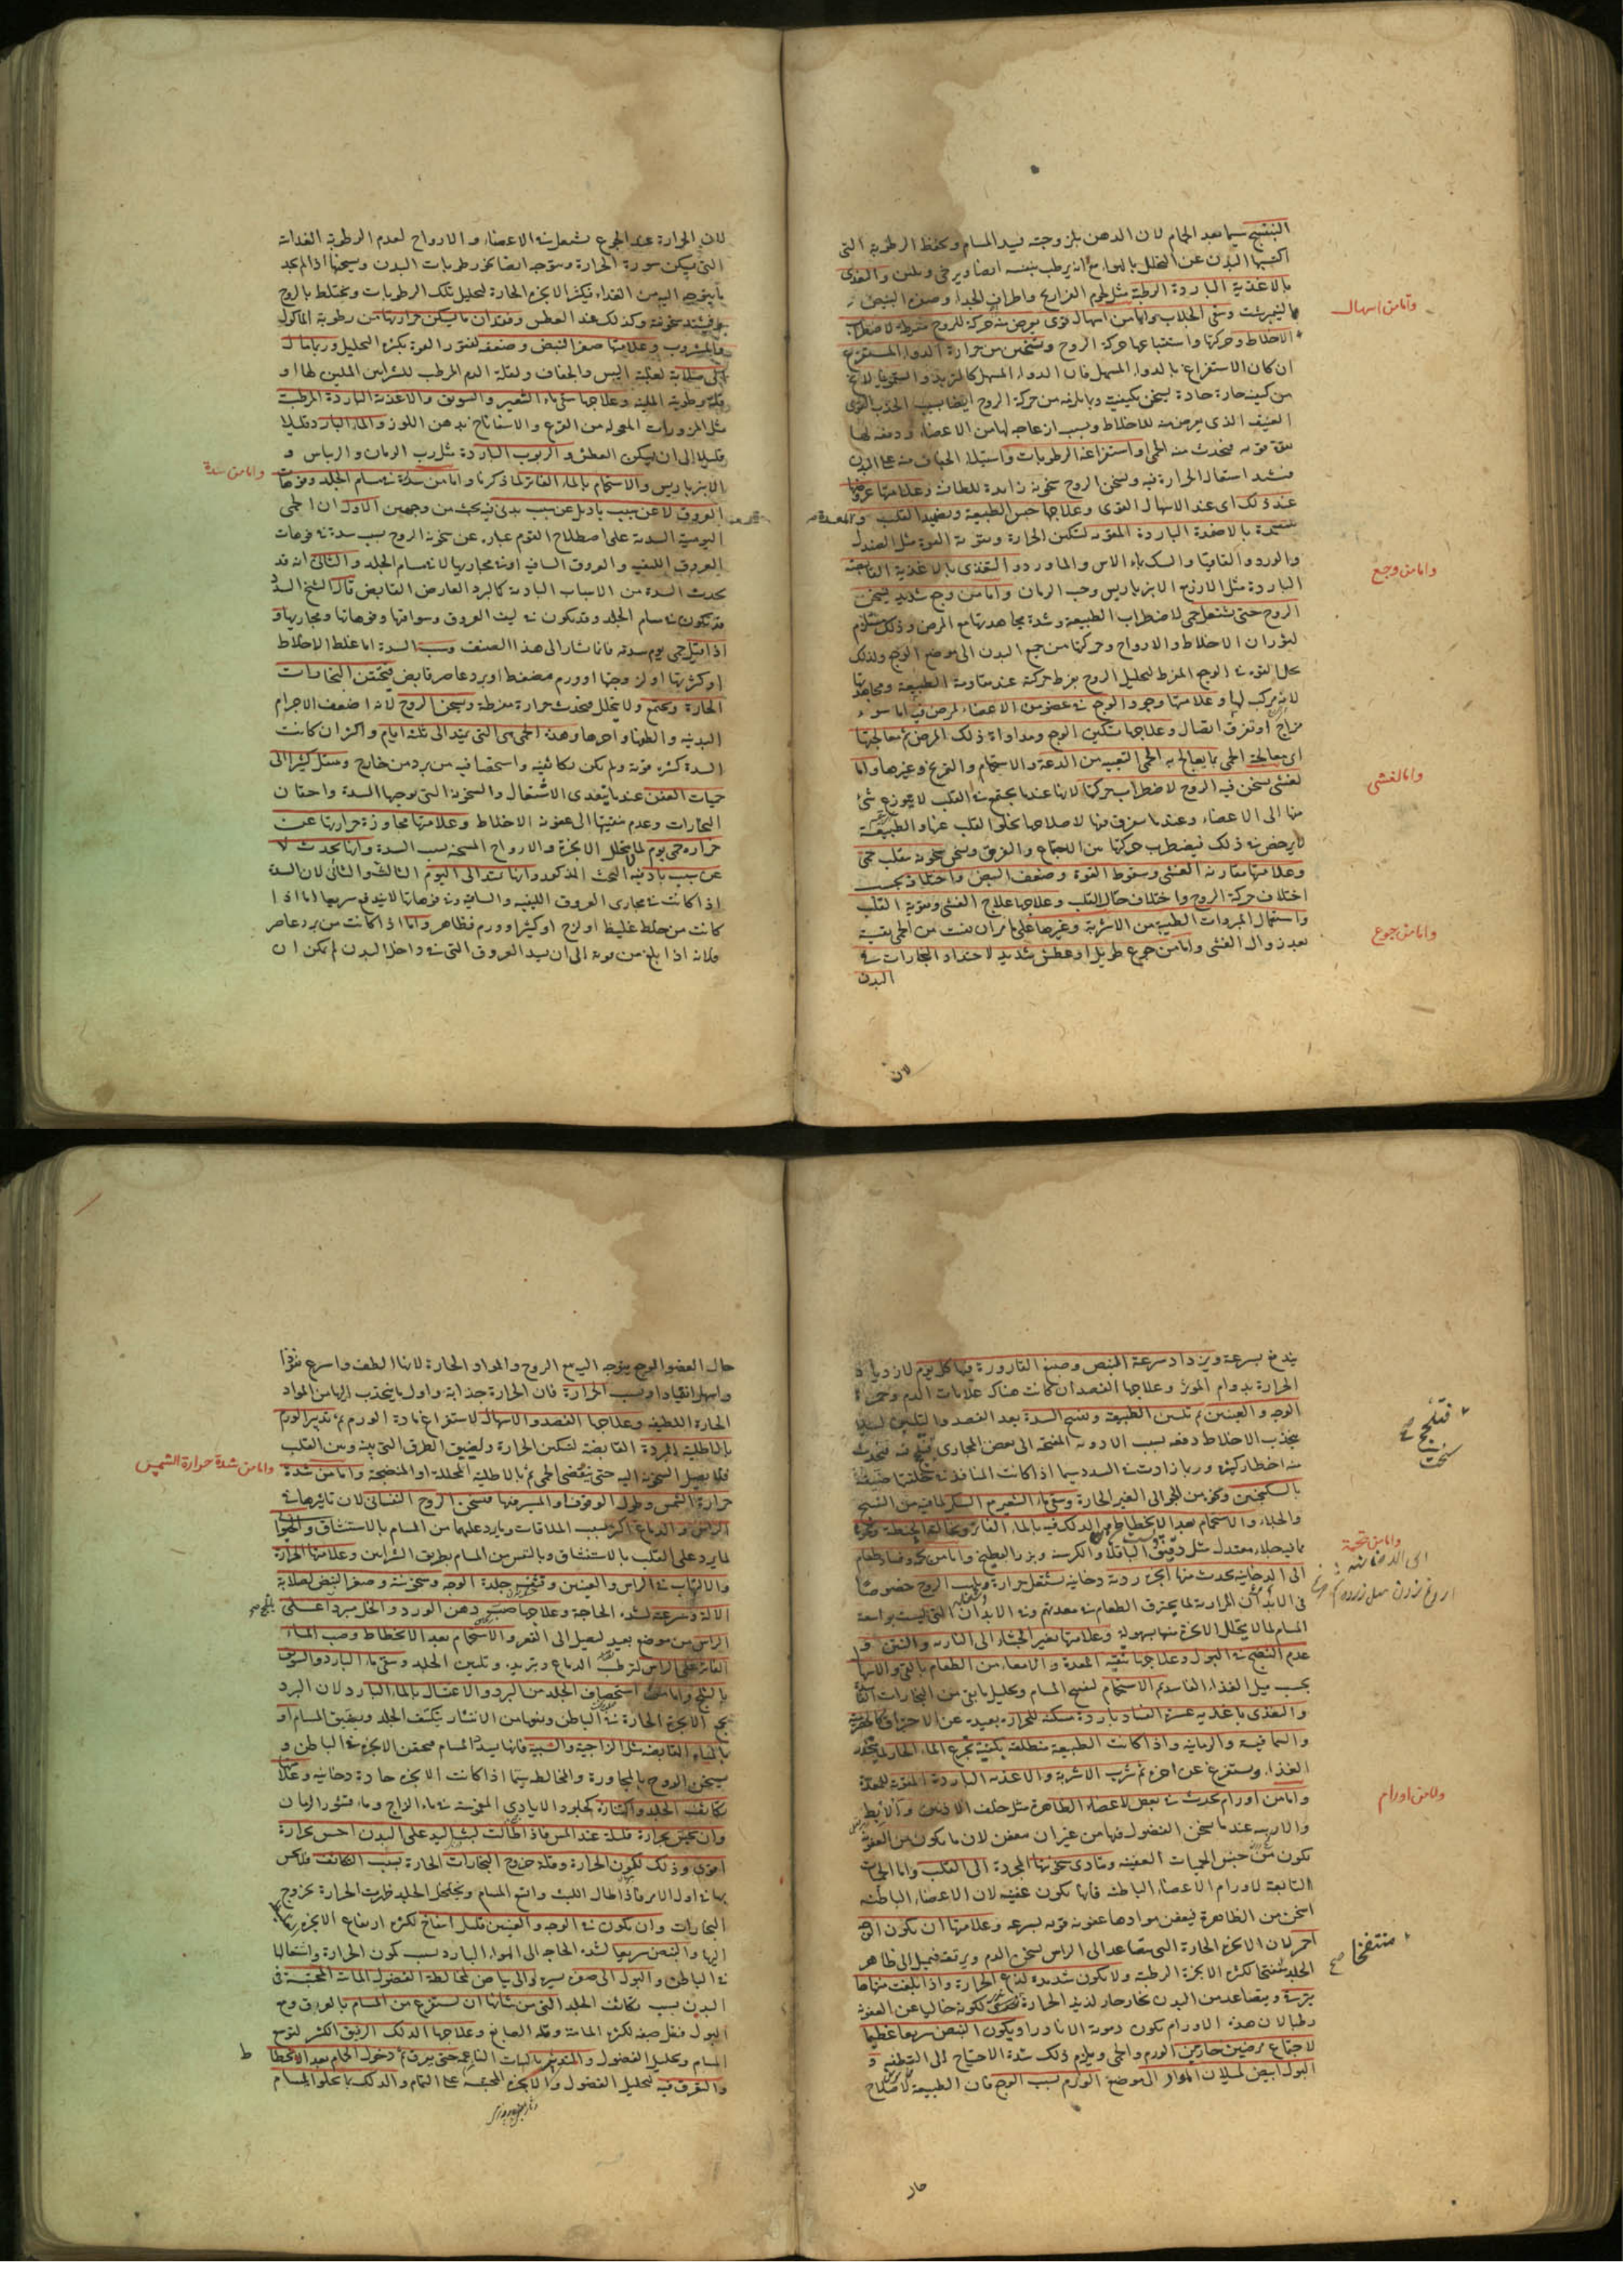 البنفسج سيما بعد الحمام لان الدهن بلزوجته يسد المسام ويحفظ الرطوبة التى
اكتسبها البدن عن التحلل بالهواء مع انه يرطب بنفسه ايضا ويرخى ويلين والتغذى
بالاغذية الباردة الرطبة مثل لحوم الفراريج واطراف الجداء وصفرة البيض
النيمبرشت وسقى الجلاب واما من اسهال قوى يعرض منه حركة للروح مفرطة لاضطراب
واما من اسهال
الاخلاط وحركتها واستتباعها حركة الروح وتسخن من حرارة الدواء المستفرغ
ان كان الاستفراغ بالدواء المسهل فان الدواء المسهل كالتربد والسقمونيا لا يخ
من كيفية حارة حادة يسخن بكيفيته وبما يلزمه من حركة الروح ايضا بسبب الجذب القوى
العنيف الذى يعرض منه للاخلاط وبسبب ازعاجه لها من الاعضاء ودفعه لها
بقوة قوية فيحدث منه الحمى او استفراغه الرطوبات واستيلاء الجفاف منه على البدن
فيشتد اشتعال الحرارة فيه ويسخن الروح سخونة زايدة للطافته وعلامتها عروضها
عند ذلك اى عند الاسهال القوى وعلاجها حبس الطبيعة وتضميد القلب والمعدة
بالاضمدة الباردة المقوية لتسكين الحرارة وتقوية القوة مثل الصندل
والورد والقاقيا والسك بماء الاس والماورد والتغذى بالاغذية القابضة
واما من وجع
الباردة مثل الارزج الانبرباريس وحب الرمان واما من وجع شديد يسخن
الروح حتى تشتعل حمى لاضطراب الطبيعة وشدة مجاهدتها مع المرض وذلك مستلزم
لثوران الاخلاط والارواح وحركتها من جميع البدن الى موضع الوجع ولذلك
يحل القوة فى الوجع المفرط لتحليل الروح بفرط حركته عند مقاومة الطبيعة ومجاهدتها
وعلامتها وجود الوجع فى عضو من الاعضاء لمرض فيه اما سوء
مزاج او تفرق اتصال وعلاجها تسكين الوجع ومداواة ذلك المرض ثم معالجتها
اى معالجة الحمى بما يعالج به الحمى التعبية من الدعة والاستحمام والتمريخ وغيرها واما
واما لغشى
لغشى يسخن فيه الروح لاضطراب حركتها لانها عندما يجتمع فى القلب لا يتوزع شئ
منها الى الاعضاء وعندما يتفرق منها لاصلاحها يخلو القلب عنها والطبيعة
لا يرخص فى ذلك فيضطرب حركتها بين الاجتماع والتفرق
وعلامتها مقارنة الغشى وسقوط القوة وضعف النبض واختلافه بحسب
اختلاف حركة الروح واختلاف حال القلب وعلاجها علاج الغشى وتقوية القلب
واستعمال المبردات الطيبة من الاشربة وغيرها على ما مر ان بقيت من الحمى بقية
واما من جوع
بعد زوال الغشى واما من جوع طويل او عطش شديد لاحتداد البخارات فى
البدن
لان
لان الحرارة عند الجوع تشتعل فى الاعضاء والارواح لعدم الرطوبة الغذائية
التى يسكن سورة الحرارة ويتوجه ايضا نحو رطوبات البدن ويسخنها اذا لم يجد
ما يتوجه اليه من الغذاء فيكثر الابخرة الحارة لتحليل تلك الرطوبات ويختلط بالروح
سخونة وكذلك عند العطش وفقدان ما يسكن حرارتها من رطوبة الماكول
والمشروب وعلامتها صغر النبض وضعفه لفتور القوة بكثرة التحليل وربما مال
الى صلابة لغلبة اليبس والجفاف ولقلة الدم المرطب للشرايين الملين لها او
قلة رطوبته الملينة وعلاجها سقى ماء الشعير والسويق والاغذية الباردة المرطبة
مثل المزورات المعمولة من القرع والاسفاناخ بدهن اللوز والماء البارد قليلا
قليلا الى ان يسكن العطش والربوب الباردة مثل رب الرمان والريباس و
واما من سدة
الانبرباريس والاستحمام بالماء الفاتر لما ذكرنا واما من سدة فى مسام الجلد وفوهات
العروق لا عن سبب باد بل عن سبب بدنى فيه بحث من وجهين الاول ان الحمى
اليومية السدية على اصطلاح القوم عبارة عن سخونة الروح بسبب سدة فى فوهات
العروق الليفية والعروق الساقية او فى مجاريها لا فى مسام الجلد والثانى انه قد
يحدث السدة من الاسباب البادية كالبرد العارض القابض قال الشيخ السدة
قد تكون فى مسام الجلد وقد تكون فى ليف العروق وسواقيها وفوهاتها ومجاريها و
اذا قيل حمى يوم سدية فانما يشار الى هذا الصنف وسبب السدة اما غلظ الاخلاط
او كثرتها او لزوجتها او ورم مضغط او برد عاصر قابض فيحتقن البخارات
الحارة ويجتمع ولا يتحلل فيحدث حرارة مفرطة ويسخن الروح لانه اضعف الاجرام
البدنية والطفها واحرها وهذه الحمى هى التى تمتد الى ثلثة ايام واكثر ان كانت
السدة كثيرة قوية ولم تكن تكاثفية واستحصافية من برد من خارج وتنتقل كثيرا الى
حميات العفن عندما يتعدى الاشتعال والسخونة التى توجبها السدة واحتقان
البخارات وعدم تنقيتها الى عفونة الاخلاط وعلامتها مجاوزة حرارتها عن
حرارة حمى يوم لما يتحلل الابخرة والارواح المسخنة بسبب السدة وانها تحدث لا
عن سبب باد فيه البحث المذكور وانها تمتد الى اليوم الثالث والثانى لان السدة
اذا كانت فى مجارى العروق الليفية والساقية وفى فوهاتها لا يندفع سريعا اما اذا
كانت من خلط غليظ او لزج او كثير او ورم فظاهر واما اذا كانت من برد عاصر
فلانه اذا بلغ من قوته الى ان يسد العروق التى فى داخل البدن لم يكن ان
يندفع بسرعة ويزداد سرعة النبض وصبغ القارورة فيها كل يوم لازدياد
الحرارة بدوام المؤثر وعلاجها الفصد ان كانت هناك علامات الدم وحمرة
الوجه والعينين ثم تليين الطبيعة وتفتيح السدة بعد الفصد والتليين لئلا
ينجذب الاخلاط دفعة بسبب الادوية المفتحة الى بعض المجارى فيلحج فيه فيحدث
فيلحج صح
منه اخطار كثيرة وربما زادت فى السدد سيما اذا كانت المنافذ فى خلقتها ضيقة
بالسكنجبين ونحوه من الجوالى الغير الحارة وسقى ماء الشعير مع السكر لما فيه من التفتيح
والجلاء والاستحمام بعد الانحطاط ثم الدلك فيه بالماء الفاتر ونخالة الحنطة ونحوه
واما من تخمة
مما فيه جلاء معتدل مثل دقيق الباقلا والكرسنة وبزر البطيخ واما من تخمة وفساد طعام
الى الدخانية يحدث منها ابخرة ردية دخانية يشتعل حرارة ويلهب الروح خصوصا
فى الابدان المرارية لما يحترق الطعام فى معدتهم وفى الابدان التى ليست بواسعة
المسام لما لا يتحلل الابخرة منها بسهولة وعلامتها تغير الجشاء الى النارية والنتن و
عدم النضج فى البول وعلاجها تنقية المعدة والامعاء من الطعام بالقئ والاسهال
بحسب ميل الغذاء الفاسد ثم الاستحمام لتفتح المسام وتحليل ما بقى من البخارات
والتغذى باغذية عسرة الفساد باردة مسكنة للحرارة بعيدة عن الاحتراق كالحصرمية
والسماقية والرمانية واذا كانت الطبيعة منطلقة يكفيه تجرع الماء الحار لينحدر
الغذاء ويستفرغ عن اخره ثم شرب الاشربة والاغذية الباردة المقوية للمعدة
واما من اورام
واما من اورام تحدث فى بعض الاعضاء الظاهرة مثل خلف الاذنين والابط
والاربية عندما يسخن الفضول فيها من غير ان تعفن لان ما تكون من العفونة
تكون من جنس الحميات العفنية ويتادى سخونتها المجردة الى القلب واما الحميات
التابعة لاورام الاعضاء الباطنة فانها تكون عفنية لان الاعضاء الباطنة
اسخن من الظاهرة فيعفن موادها عفونة قوية بسرعة وعلامتها ان يكون الوجه
احمر لان الابخرة الحارة التى يتصاعد الى الراس يسخن الدم ويرققه فيميل الى ظاهر
منتفخا صح
الجلد منتفخا لكثرة الابخرة الرطبة ولا يكون شديدة لذع الحرارة واذا بلغت منتهاها
ويتصاعد من البدن بخار حار لذيذ الحرارة لكونه خاليا عن العفونة
رطبا لان هذه الاورام تكون دموية الا نادرا ويكون النبض سريعا عظيما
لاجتماع مرضين حارين الورم والحمى ويلزم ذلك شدة الاحتياج الى التطفية و
البول ابيض لميلان المواد الى موضع الورم بسبب الوجع فان الطبيعة لاصلاح
حال
حال العضو الوجع يتوجه اليه مع الروح والمواد الحارة لانها الطف واسرع نفوذا
واسهل انقيادا وبسبب الحرارة فان الحرارة جذابة واول ما ينجذب اليها من المواد
الحارة اللطيفة وعلاجها الفصد والاسهال لاستفراغ مادة الورم ثم تدبير الورم
بالاطلية المبردة القابضة لتسكين الحرارة وليضيق الطرق التى بينه وبين القلب
واما من شدة حرارة الشمس
فلا يصل السخونة اليه حتى تنقضى الحمى ثم بالاطلية المحللة او المنضجة واما من شدة
حرارة الشمس وطول الوقوف او المسير فيها فيسخن الروح النفسانى لان تاثيرها فى
الراس والدماغ اكثر بسبب الملاقات وما يرد عليهما من المسام بالاستنشاق والحيوانى
لما يرد على القلب بالاستنشاق وبالتنفس من المسام بطريق الشرايين وعلامتها الحرارة
والالتهاب فى الراس والعينين جلدة الوجه وسخونته وصغر النبض لصلابة
الالة وسرعته لشدة الحاجة وعلاجها صب دهن الورد والخل مبردا على
الراس من موضع بعيد ليصل الى القعر والاستحمام بعد الانحطاط وصب الماء
الفاتر على الراس لترطيب الدماغ وتبريده وتليين الجلد وسقى ماء البارد والسويق
بالثلج واما من استحصاف الجلد من البرد والاغتسال بالماء البارد لان البرد
يجمع الابخرة الحارة فى الباطن ويمنعها من الانتشار بتكثيف الجلد وتضييق المسام او
بالمياه القابضة مثل الزاجية والشبية فانها يسد المسام فيحتقن الابخرة فى الباطن و
يسخن الروح بالمجاورة والمخالطة سيما اذا كانت الابخرة حادة دخانية وعلامتها
تكاثف الجلد واكتنازه كجلود الايادى المغموسة فى ماء الزاج وماء قشور الرمان
وان يحس بحرارة قليلة عند المس فاذا طالت لبث اليد على البدن احس بحرارة
اقوى وذلك لكمون الحرارة وقلة خروج البخارات الحارة بسبب التكاثف فلا يحس
بها فى اول الامر فاذا طال اللبث واتسع المسام وتخلخل الجلد ظهرت الحرارة بخروج
البخارات وان يكون فى الوجه والعينين قليل انتفاخ لكثرة ارتفاع الابخرة
اليها والنبض سريعا لشدة الحاجة الى الهواء البارد بسبب كمون الحرارة واشتعالها
فى الباطن والبول الى صفرة يسيرة والى بياض لمخالطة الفضول المائية المحتقنة فى
البدن بسبب تكاثف الجلد التى من شانها ان تستفرغ من المسام بالعرق مع
البول فيقل صبغه لكثرة المائية وقلة الصابغ وعلاجها الدلك الرقيق الكثير لتوسيع
المسام وتحليل الفضول والتدثير بالثياب الناعمة حتى يعرق ثم دخول الحمام بعد الانحطاط
والتعرق فيه لتحليل الفضول والابخرة المحتقنة على التمام والدلك بما يجلو المسام